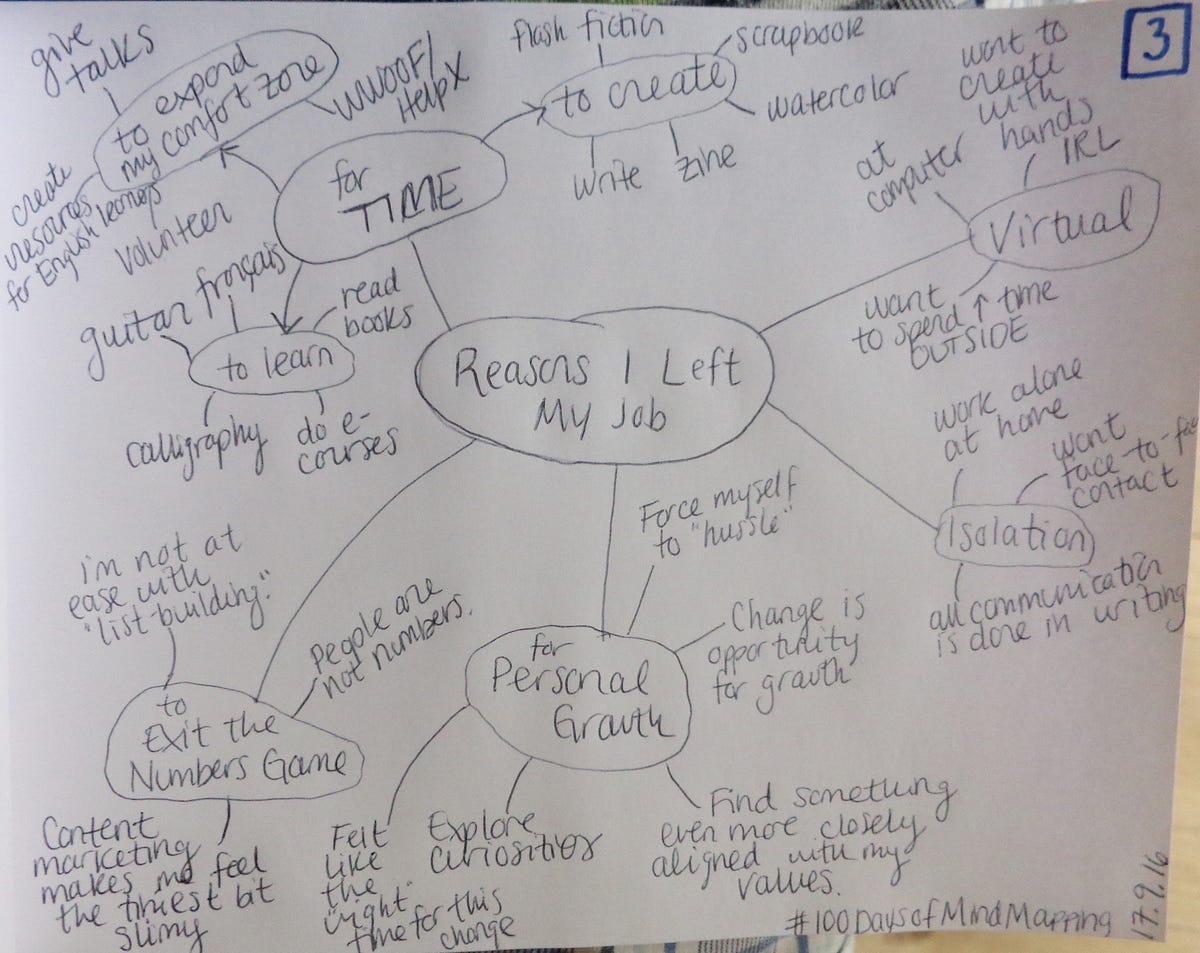 3
Reasons I Left
My Job
for
TIME
to expand
my comfort zone
give
talks
WWOOF/
HelpX
create
resources
for English learners
volunteer
to create
flash fiction
scrapbook
watercolor
zine
write
to learn
guitar
français
read
books
calligraphy
do e-
courses
Virtual
at
computer
want to
create
with
hands
IRL
want
to spend ↑ time
OUTSIDE
Isolation
work alone
at home
want
face-to-fac
contact
all communication
is done in writing
for
Personal
Growth
Force myself
to "hustle"
Change is
opportunity
for growth
Find something
even more closely
aligned with my
values.
Explore
curiosities
Felt
like
the
"right"
time for this
change
to
Exit the
Numbers Game
i'm not at
ease with
"list-building."
People are
not numbers.
Content
marketing
makes me feel
the tiniest bit
slimy
#100DaysofMindMapping
17.9.16